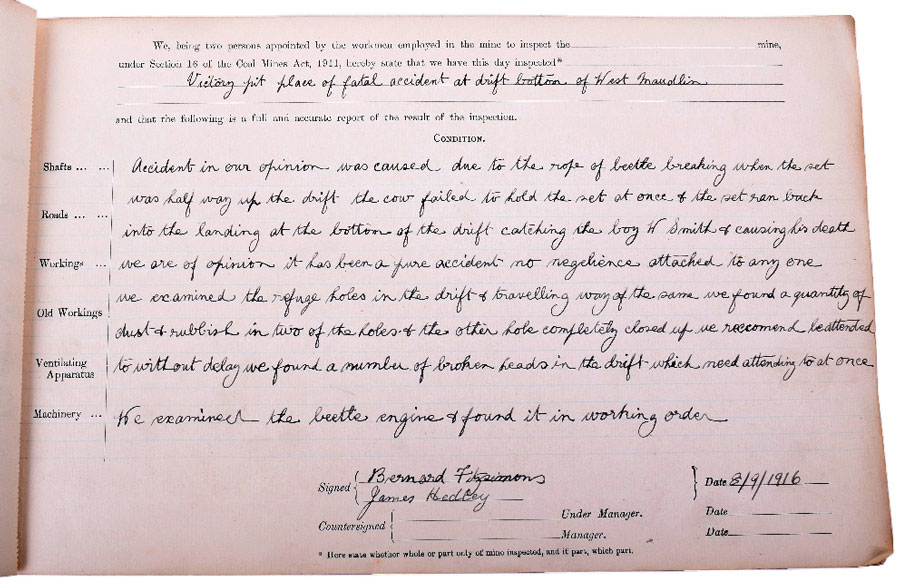 We, being two persons appointed by the workmen employed in the mine to inspect the mine,
under Section 16 of the Coal Mines Act, 1911, hereby state that we have this day inspected*
Victory pit place of fatal accident at drift botton of West Maudlin
and that the following is a full and accurate report of the result of the inspection.
CONDITION.
Shafts ... ... Accident in our opinion was caused due to the rope of beetle breaking when the set
was half way up the drift the cow failed to hold the set at once & the set ran back
Roads ... ... into the landing at the bottom of the drift catching the boy W Smith & causing his death
Workings ... we are of opinion it has been a pure accident no neglience attached to any one
we examined the refuge holes in the drift & travelling way of the same we found a quantity of
Old Workings dust & rubbish in two of the holes & the other hole completely closed up we reccomend be attended
Ventilating Apparatus to without delay we found a number of broken heads in the drift which need attending to at once
Machinery ... We examined the beetle engine & found it in working order
Signed Bernard Fitzsimons
James Hedley
Date 8/9/1916
Countersigned Under Manager. Date
Manager. Date
* Here state whether whole or part only of mine inspected, and if part, which part.